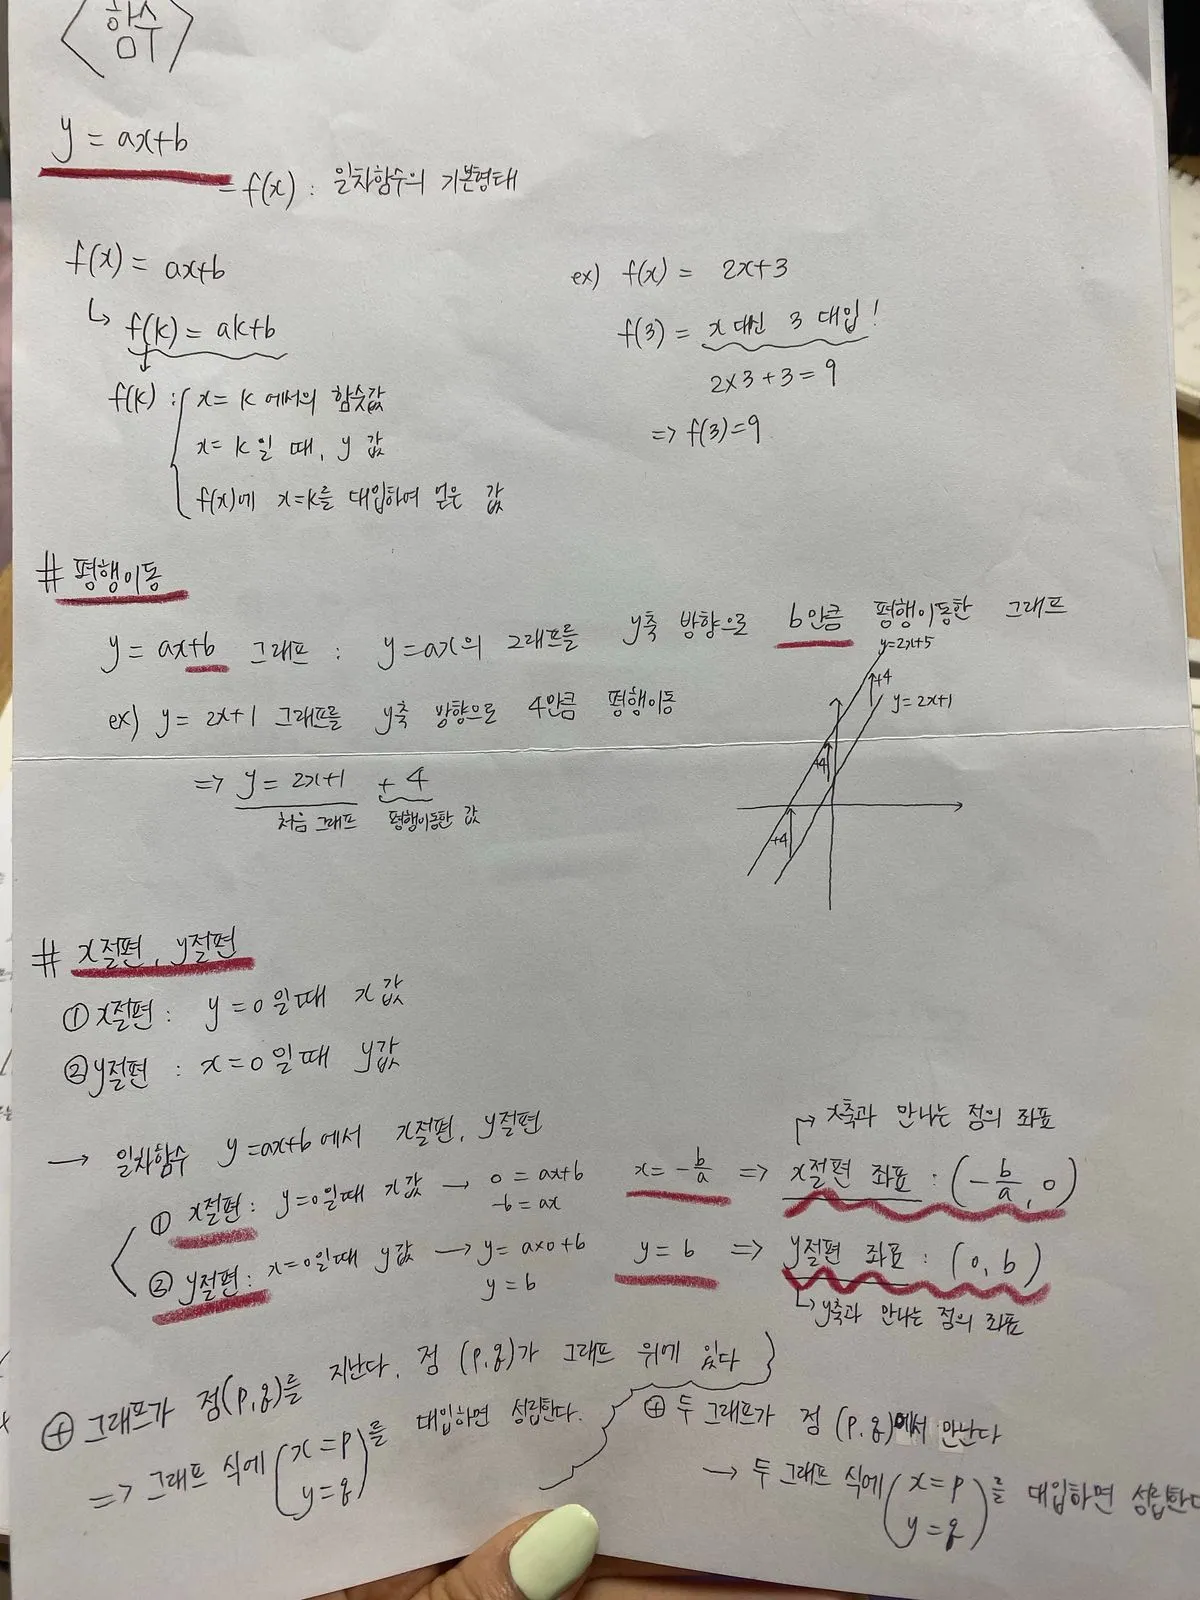 <함수>
y = ax+b
= f(x) : 일차함수의 기본형태
f(x) = ax+b
↳ f(k) = ak+b
f(k) : x = k 에서의 함숫값
x = k 일 때, y 값
f(x)에 x=k를 대입하여 얻은 값
ex) f(x) = 2x+3
f(3) = x 대신 3 대입!
2×3+3=9
=> f(3)=9
# 평행이동
y = ax+b 그래프 : y=ax의 그래프를 y축 방향으로 b만큼 평행이동한 그래프
ex) y = 2x+1 그래프를 y축 방향으로 4만큼 평행이동
=> y = 2x+1 + 4
처음 그래프 평행이동한 값
y=2x+5
+4
y=2x+1
+4
+4
# x절편, y절편
① x절편 : y=0일때 x값
② y절편 : x=0일때 y값
→ 일차함수 y=ax+b에서 x절편, y절편
↱ x축과 만나는 점의 좌표
① x절편 : y=0일때 x값 → 0 = ax+b x = -b/a => x절편 좌표 : (-b/a, 0)
-b = ax
② y절편 : x=0일때 y값 → y = a×0+b y = b => y절편 좌표 : (0, b)
y = b
↳ y축과 만나는 점의 좌표
⊕ 그래프가 점(p,q)를 지난다. 점 (p,q)가 그래프 위에 있다
=> 그래프 식에 (x=p
y=q)를 대입하면 성립한다.
⊕ 두 그래프가 점 (p,q)에서 만난다
→ 두 그래프 식에 (x=p
y=q)를 대입하면 성립한다